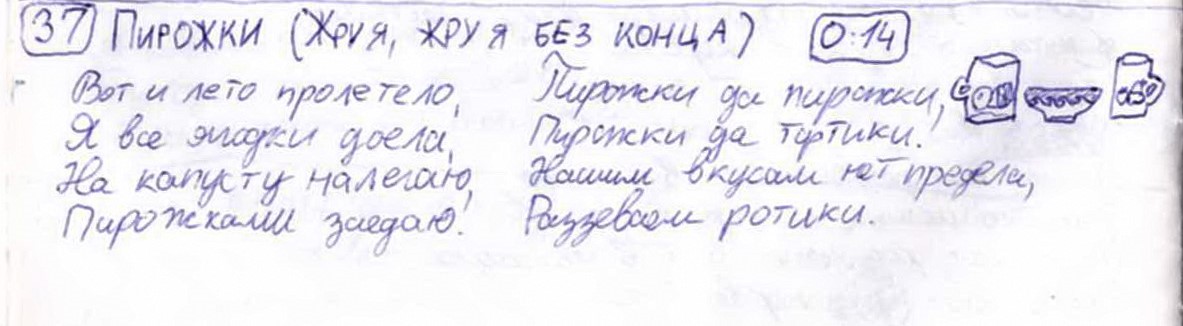 37 ПИРОЖКИ (ЖРУ Я, ЖРУ Я БЕЗ КОНЦА) 0:14
Вот и лето пролетело,
Я все ягодки доела,
На капусту налегаю,
Пирожками заедаю!
Пирожки да пирожки,
Пирожки да тортики!
Нашим вкусам нет предела,
Раззеваем ротики.